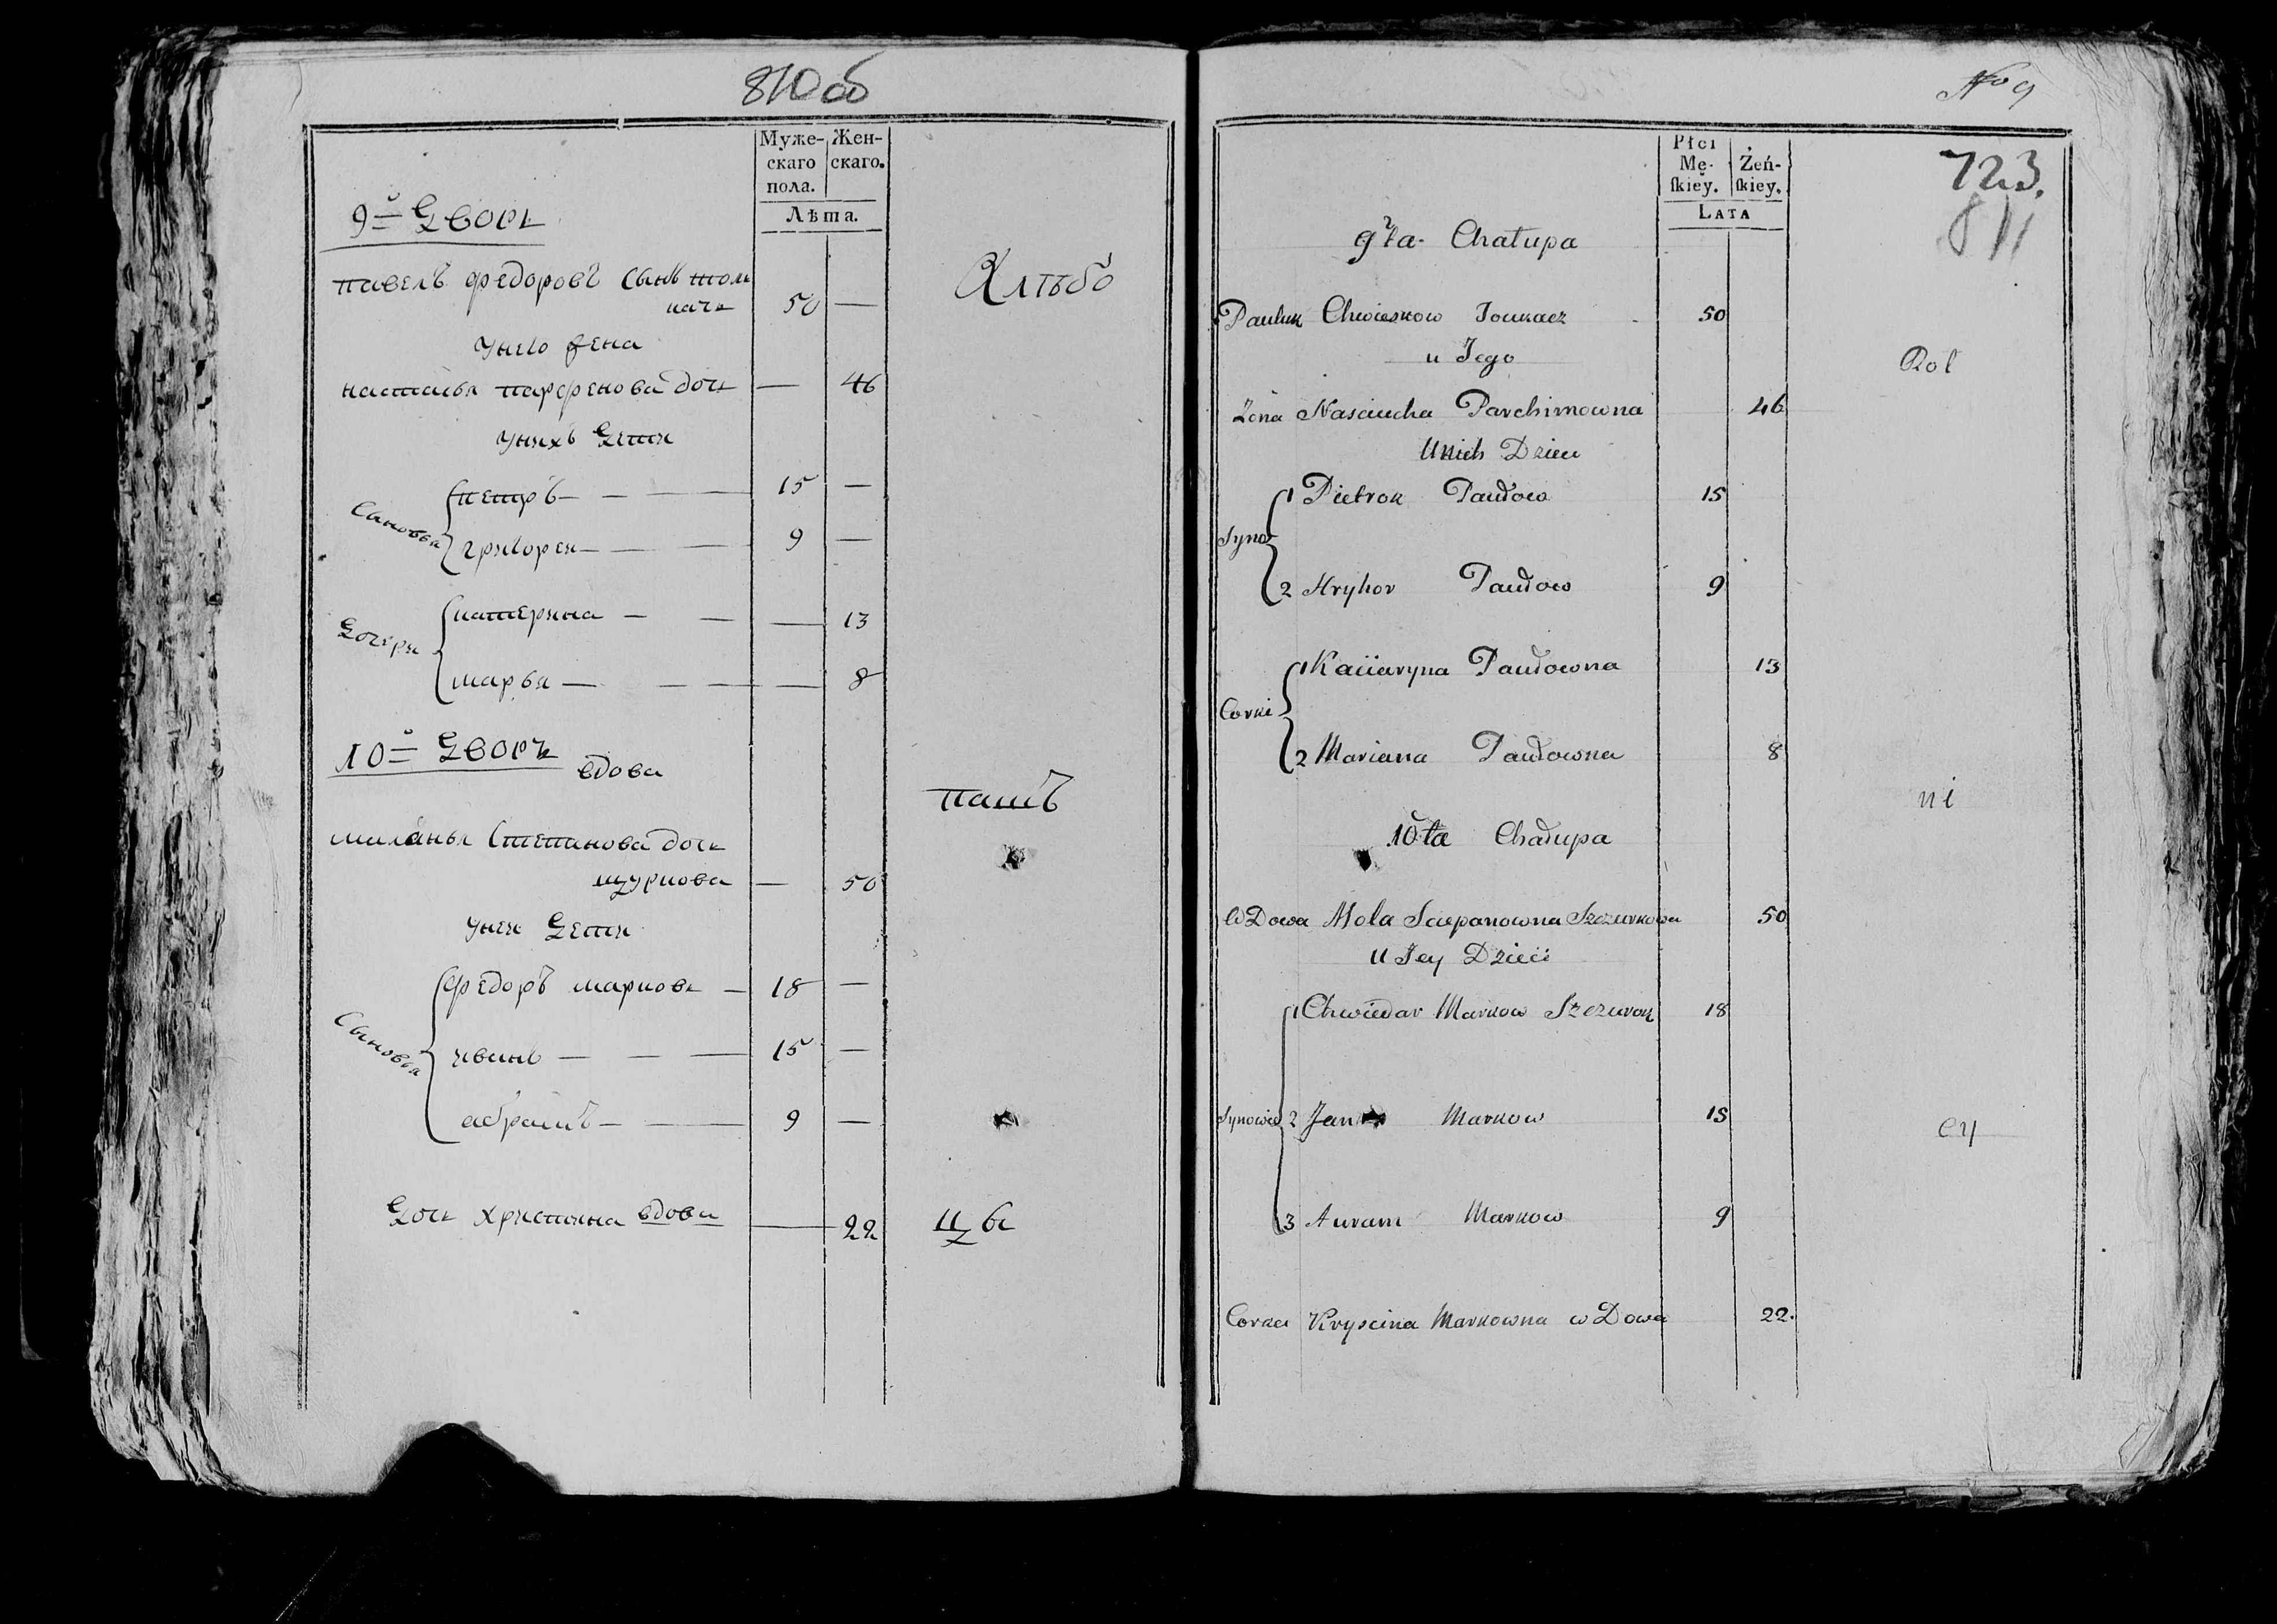 810 об
Муже-
скаго
пола.
Жен-
скаго.
Лѣта.
9й Дворъ
павелъ федоровъ сынъ толк
качъ 50 —
Унего жена
настасья парфенова дочь — 46
Унихъ Дети
Сыновья
петръ — — — 15 —
григорей — — — 9 —
Дочери
катерина — — — 13
марья — — — — 8
Хлѣбо
10й Дворъ
вдова
миланья степанова дочь
щуркова — 50
Унеи Дети
Сыновья
федоръ марковъ — 18 —
иванъ — — — 15 —
абрамъ — — 9 —
Дочь христина вдова — 22
пашъ
цы
No 9
723.
811
Płci
Mę-
ſkiey.
Żeń-
ſkiey.
LATA
9ta Chałupa
Pauluk Chwieskow Toukacz - 50
u Jego
Żona Nasciucha Parchimowna 46
Unich Dzieci
Syno
1 Pietrok Paułow 15
2 Hryhor Paułow 9
Corki
1 Kaciaryna Paułowna 13
2 Mariana Paułowna 8
10ta Chałupa
wDowa Mola Sciepanowna Szczurkowa 50
u Jey Dzieci
Synowie
1 Chwiedar Markow Szczurok 18
2 Jan Markow 15
3 Auram Markow 9
Corka Kryscina Markowna wDowa 22.
Rol
ni
cy